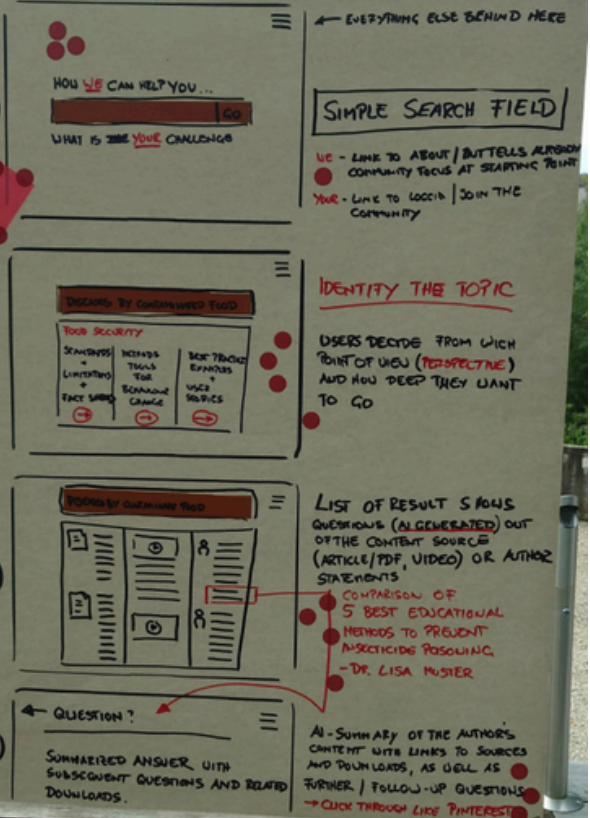 ← EVERYTHING ELSE BEHIND HERE
HOW WE CAN HELP YOU...
GO
WHAT IS YOUR CHALLENGE
SIMPLE SEARCH FIELD
WE - LINK TO ABOUT / BUT TELLS ALREADY
COMMUNITY FOCUS AT STARTING POINT
YOUR - LINK TO LOGGID | JOIN THE
COMMUNITY
DISEASES BY CONTAMINATED FOOD
FOOD SECURITY
STANDARDS
+
LIMITATIONS
+
FACT
→
METHODS
TOOLS
FOR
BEHAVIOUR
CHANGE
→
BEST PRACTICE
EXAMPLES
+
USER
STORIES
→
IDENTIFY THE TOPIC
USERS DECIDE FROM WICH
POINT OF VIEW (PERSPECTIVE)
AND HOW DEEP THEY WANT
TO GO
BY FOOD
LIST OF RESULT SHOWS
QUESTIONS (AI GENERATED) OUT
OF THE CONTENT SOURCE
(ARTICLE/PDF, VIDEO) OR AUTHOR
STATEMENTS
COMPARISON OF
5 BEST EDUCATIONAL
METHODS TO PREVENT
INSECTICIDE POISONING
- DR. LISA MUSTER
← QUESTION?
SUMMARIZED ANSWER WITH
SUBSEQUENT QUESTIONS AND RELATED
DOWNLOADS.
AI-SUMMARY OF THE AUTHOR'S
CONTENT WITH LINKS TO SOURCES
AND DOWNLOADS, AS WELL AS
FURTHER / FOLLOW-UP QUESTIONS
→ CLICK THROUGH LIKE PINTEREST